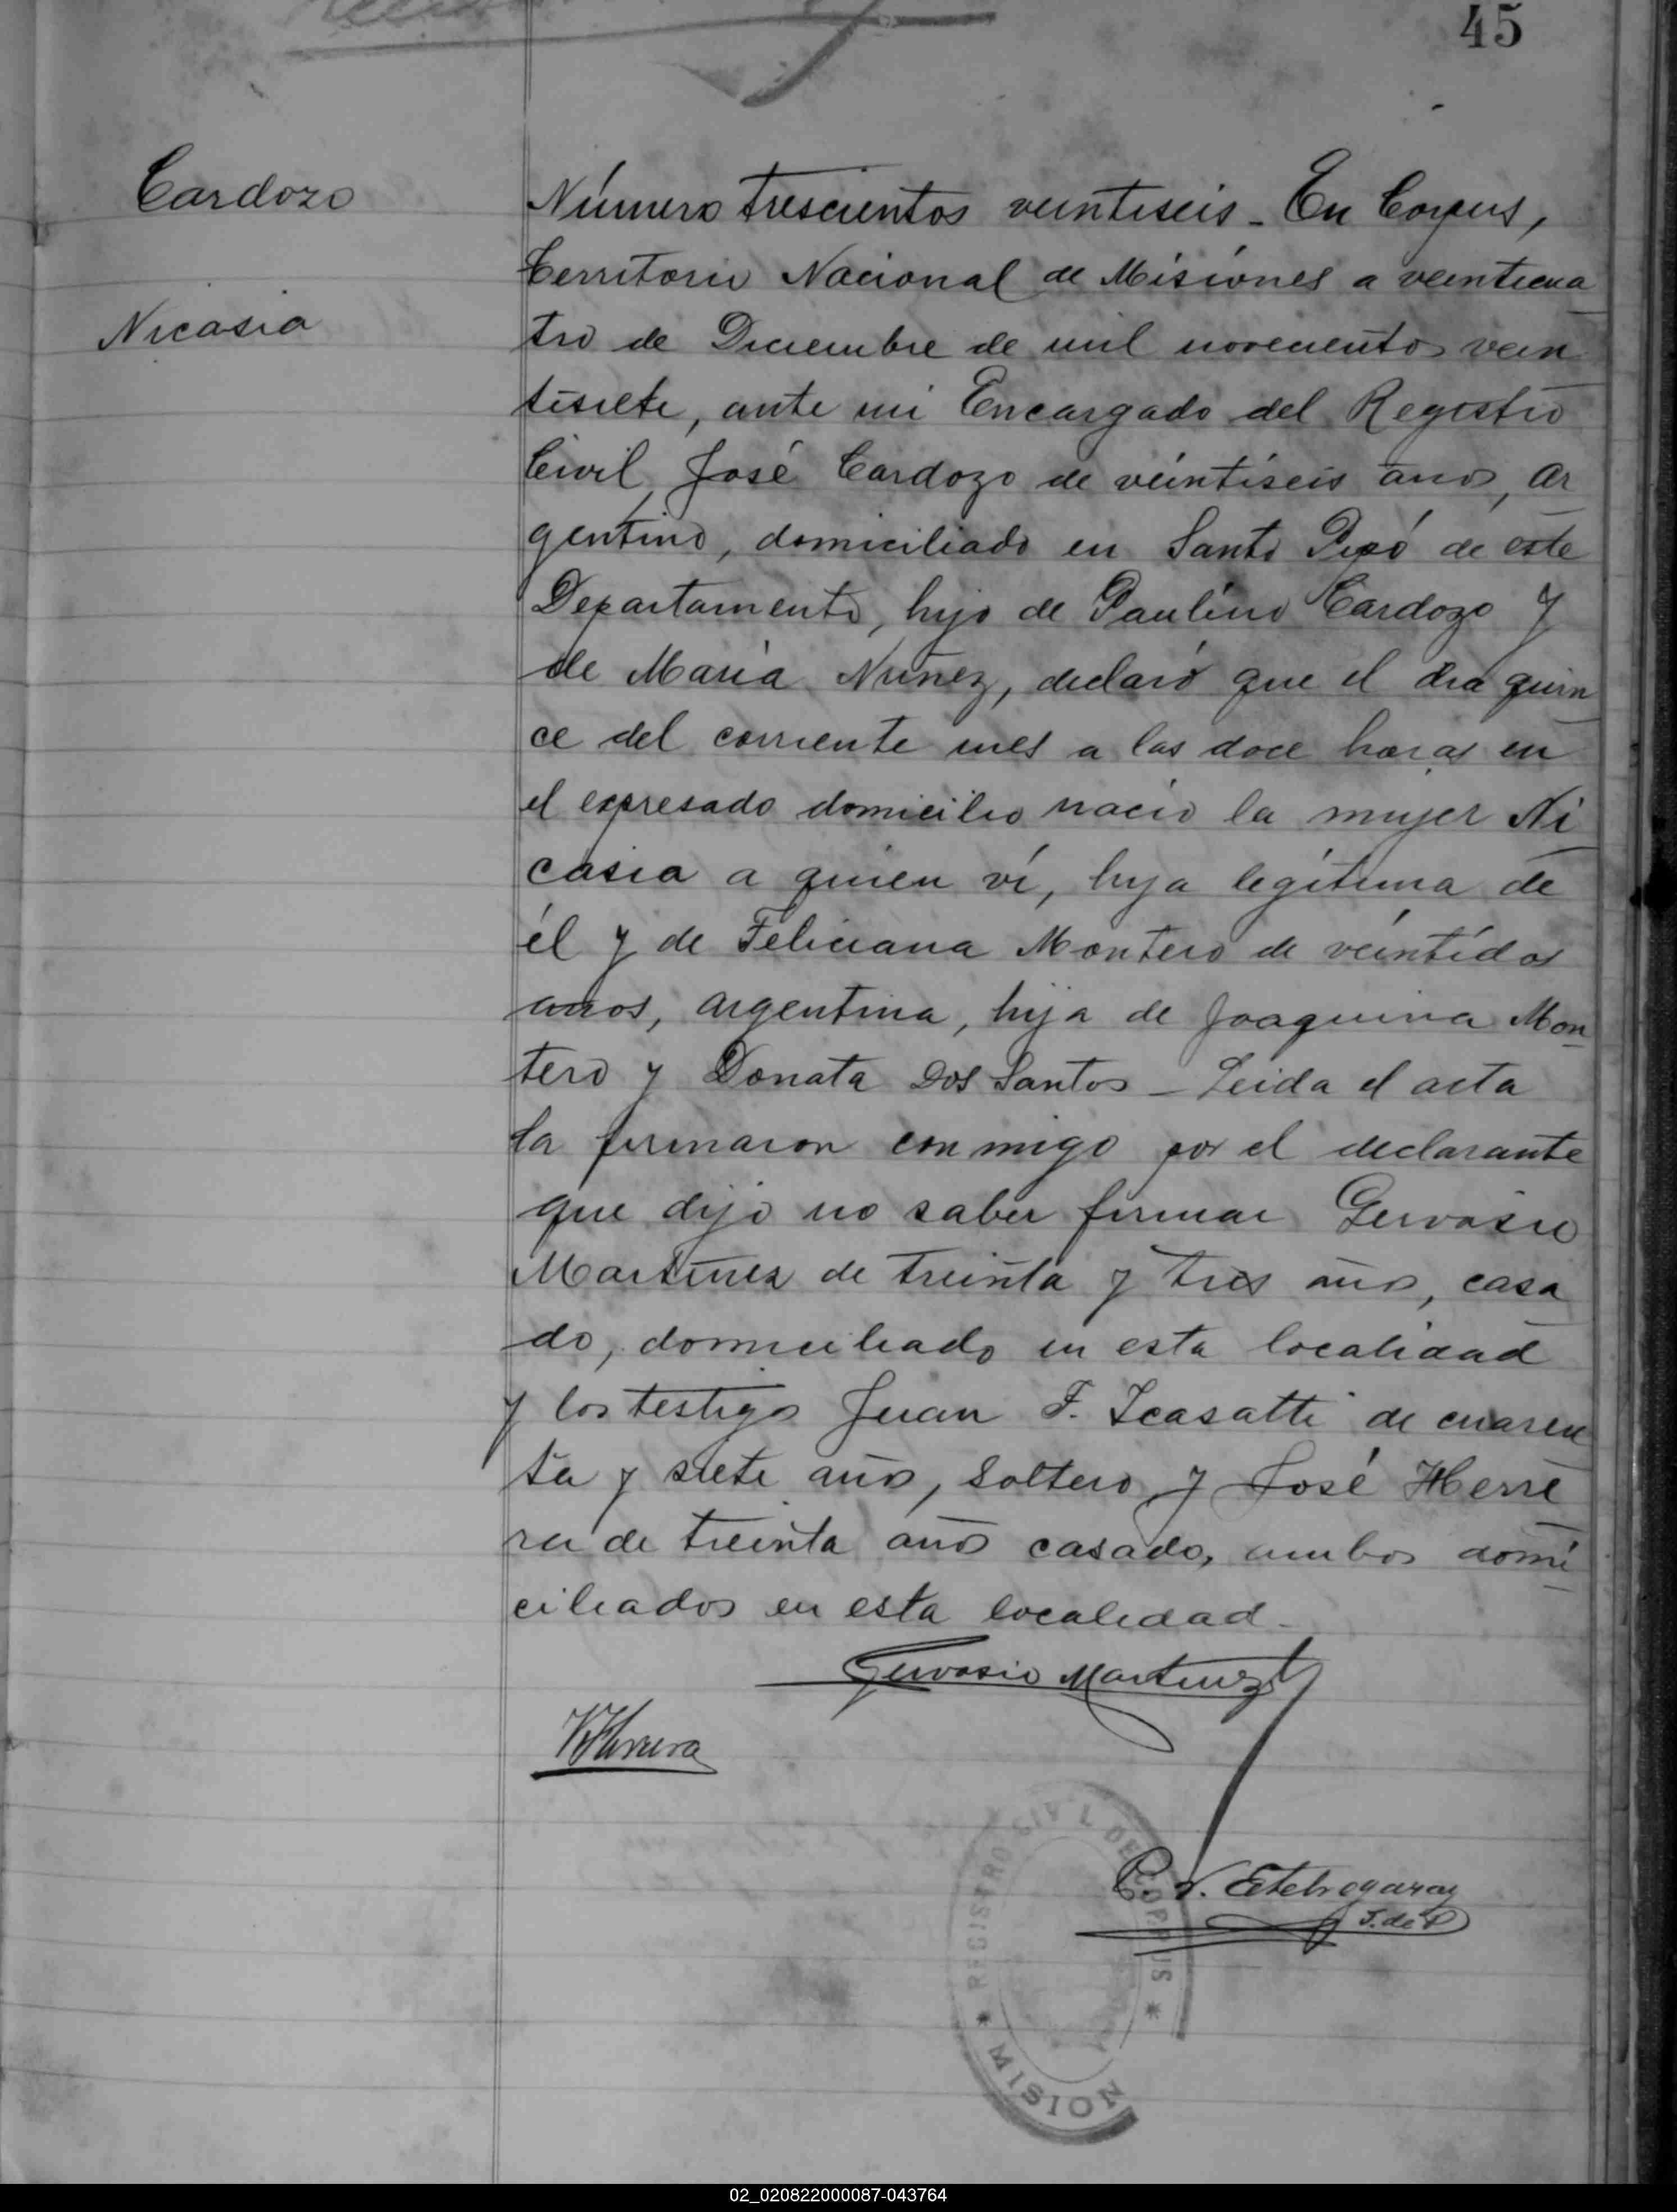 45
Cardozo
Nicasia
Número trescientos veintiseis - En Corpus,
Territorio Nacional de Misiones a veinticua
tro de Diciembre de mil novecientos vein
tisiete, ante mi Encargado del Registro
Civil, José Cardozo de veintiseis años, ar
gentino, domiciliado en Santo Pipó de este
Departamento, hijo de Paulino Cardozo y
de Maria Nuñez, declaró que el dia quin
ce del corriente mes a las doce horas en
el expresado domicilio nació la mujer Ni
casia a quien ví, hija legítima de
él y de Feliciana Montero de veintidos
años, argentina, hija de Joaquina Mon
tero y Donata Dos Santos - Leida el acta
la firmaron conmigo por el declarante
que dijo no saber firmar Gervasio
Martinez de treinta y tres años, casa
do, domiciliado en esta localidad
y los testigos Juan F. Icasatti de cuaren
ta y siete años, soltero y José Herre
ra de treinta años casado, ambos domi
ciliados en esta localidad.
Gervasio Martinez
Herrera
C. V. Etchegaray
J. de P
REGISTRO CIVIL DE CORPUS * MISION *
02_020822000087-043764